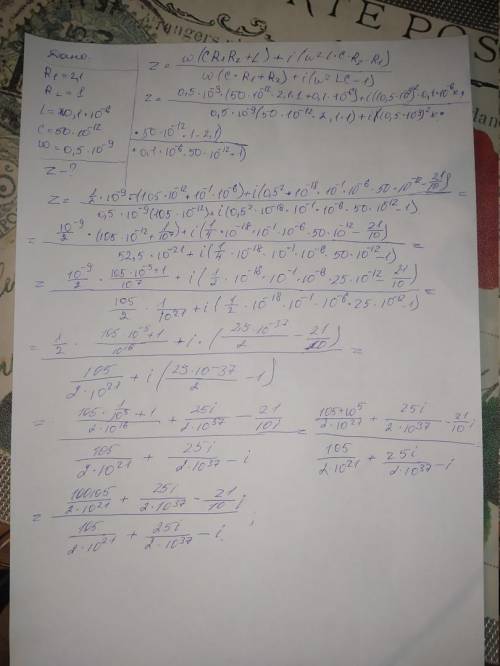 Дано:
R₁=2,1
R₂=1
L=0,1·10⁻⁶
C=50·10⁻¹²
ω=0,5·10⁻⁹
Z-?
Z = (w(CR₁R₂+L)+i(w²L·C·R₂-R₁))/(w(C·R₁+R₂)+i(w²LC-1))
Z = (0,5·10⁻⁹·(50·10⁻¹²·2,1·1+0,1·10⁻⁶)+i((0,5·10⁻⁹)²·0,1·10⁻⁶·
·50·10⁻¹²·1-2,1)
0,5·10⁻⁹(50·10⁻¹²·2,1·1)+i((0,5·10⁻⁹)²·
·0,1·10⁻⁶·50·10⁻¹²-1)
Z = (1/2·10⁻⁹·(105·10⁻¹²+10⁻¹·10⁻⁶)+i(0,5²·10⁻¹⁸·10⁻¹·10⁻⁶·50·10⁻¹²-21/10))/(0,5·10⁻⁹(105·10⁻¹²)+i(0,5²·10⁻¹⁸·10⁻¹·10⁻⁶·50·10⁻¹²-1)) =
= (10⁻⁹/2·(105·10⁻¹²+1/10⁷)+i(1/4·10⁻¹⁸·10⁻¹·10⁻⁶·50·10⁻¹²-21/10))/(52,5·10⁻²¹+i(1/4·10⁻¹⁸·10⁻¹·10⁻⁶·50·10⁻¹²-1)) =
= (10⁻⁹/2·(105·10⁻⁵+1)/10⁷+i(1/2·10⁻¹⁸·10⁻¹·10⁻⁶·25·10⁻¹²-21/10))/(105/2·1/10²¹+i(1/2·10⁻¹⁸·10⁻¹·10⁻⁶·25·10⁻¹²-1)) =
= (1/2·(105·10⁻⁵+1)/10¹⁶+i·(25·10⁻³⁷/2-21/10))/(105/(2·10²¹)+i(25·10⁻³⁷/2-1)) =
= ((105·1/10⁵+1)/(2·10¹⁶)+25i/(2·10³⁷)-21/10i)/(105/(2·10²¹)+25i/(2·10³⁷)-i) = ((105+10⁵)/(2·10²¹)+25i/(2·10³⁷)-21/10 i)/(105/(2·10²¹)+25i/(2·10³⁷)-i)
= (100105/(2·10²¹)+25i/(2·10³⁷)-21/10 i)/(105/(2·10²¹)+25i/(2·10³⁷)-i)